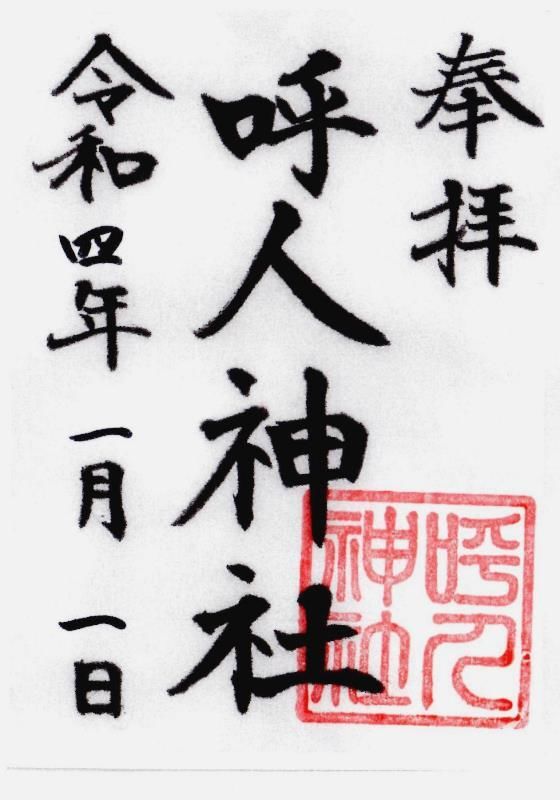 奉拝
呼人神社
令和四年 一月 一日
呼人
神社